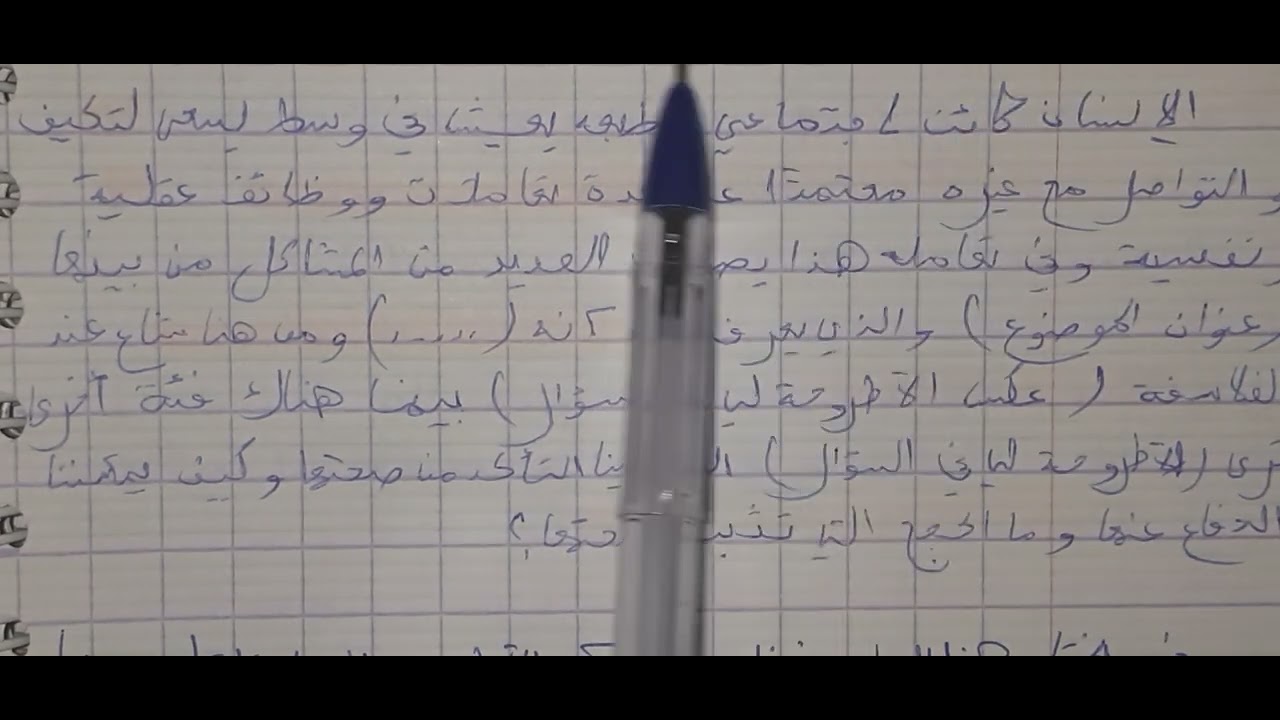 الإنسان كائن اجتماعي بطبعه يعيش في وسط يسعى لتكيف
والتواصل مع غيره معتمدا عدة تعاملات ووظائف عقلية
نفسية وفي تعامله هذا العديد من المشاكل من بينها
(عنوان الموضوع) والذي يعرف أنه (.....) ومن هنا شاع عند
الفلاسفة (عكس الأطروحة السؤال) بينما هناك فئة أخرى
ترى (الأطروحة لي في السؤال) التأكد من صحتها وكيف يمكننا
الدفاع عنها وما الحجج التي تثبت صحتها؟